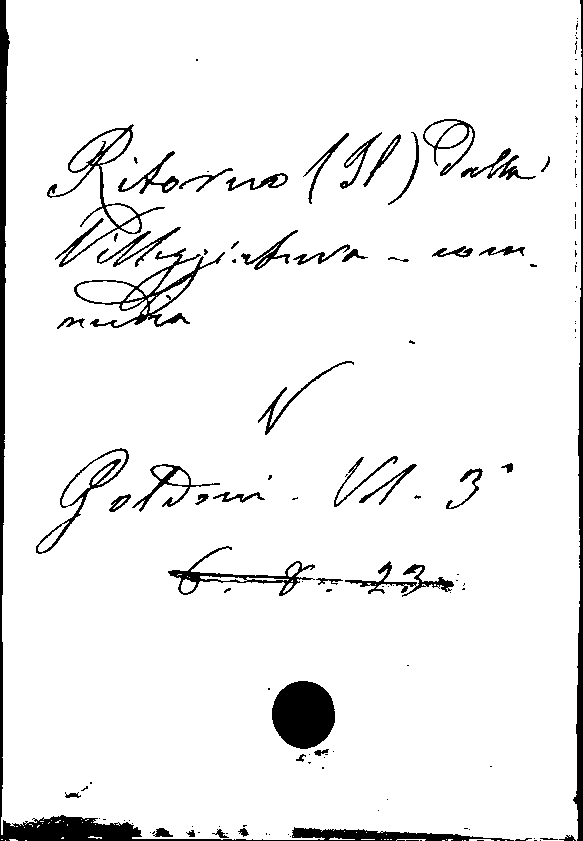 Ritorno (Il) dalla
Villeggiatura - com-
media
V
Goldoni - Vol. 3°
6. 8. 23